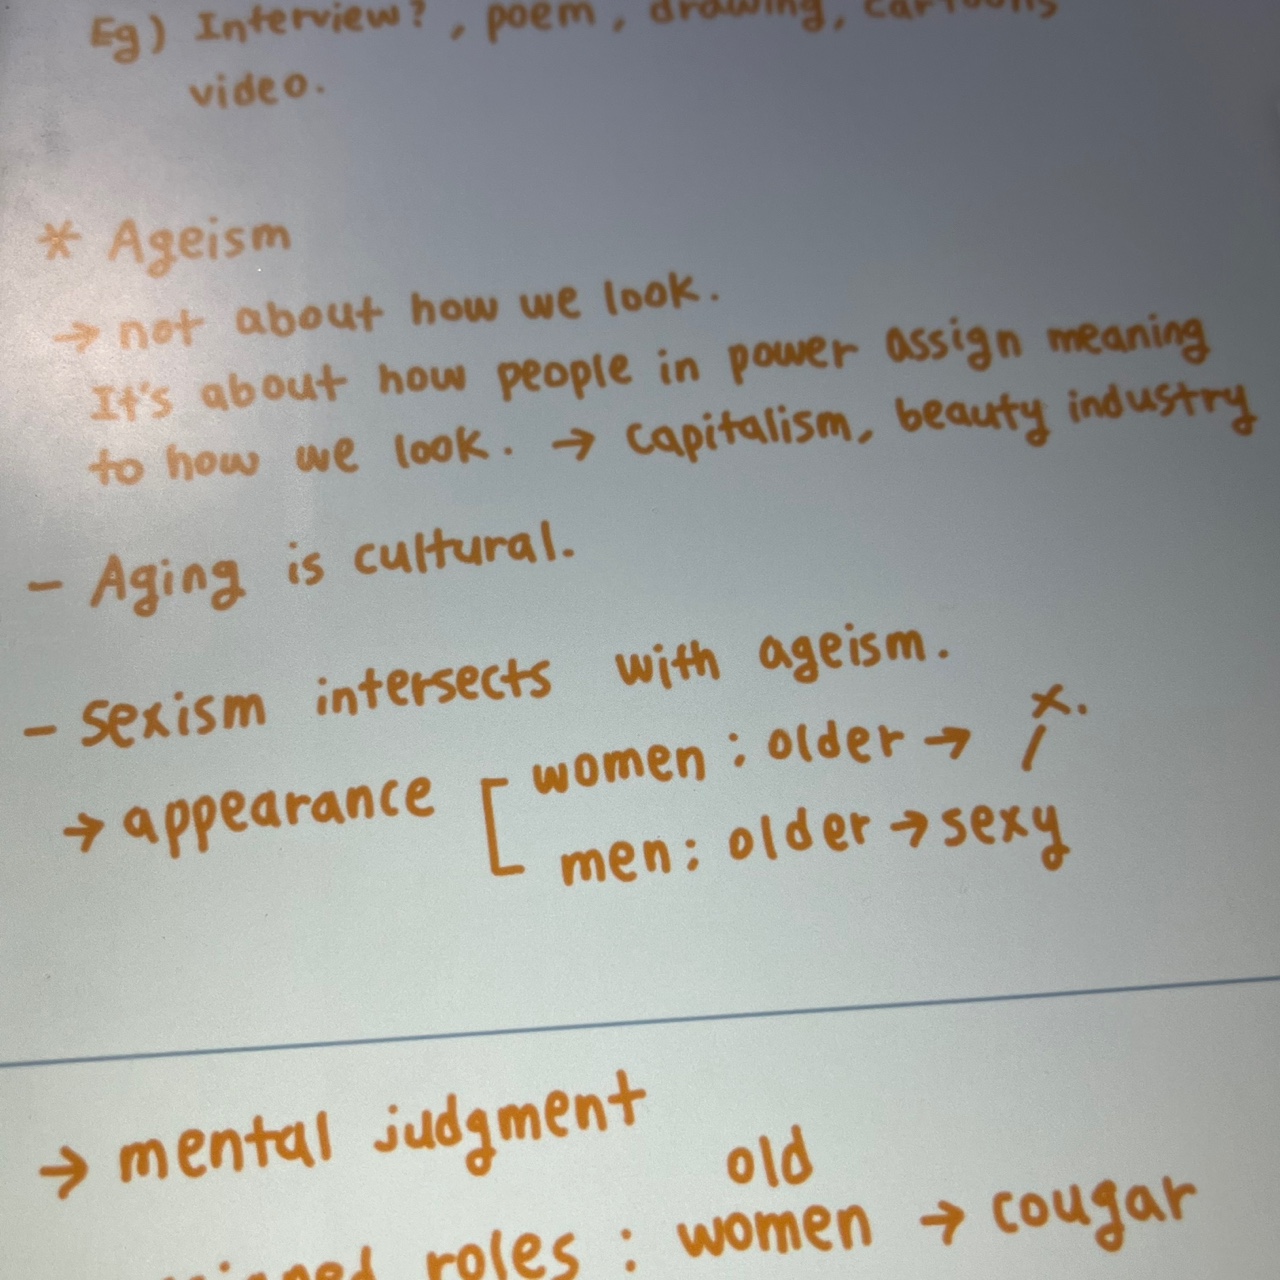 Eg) Interview?, poem, drawing, cartoons
video.
* Ageism
→ not about how we look.
It's about how people in power assign meaning
to how we look. → capitalism, beauty industry
- Aging is cultural.
- sexism intersects with ageism.
→ appearance [ women : older → / x.
men : older → sexy
→ mental judgment
old
roles : women → cougar